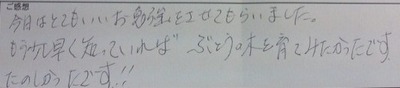 ご感想
今日はとてもいいお勉強をさせてもらいました。
もう少し早く知っていれば ぶどうの木を育てみたかったです
たのしかったです!!